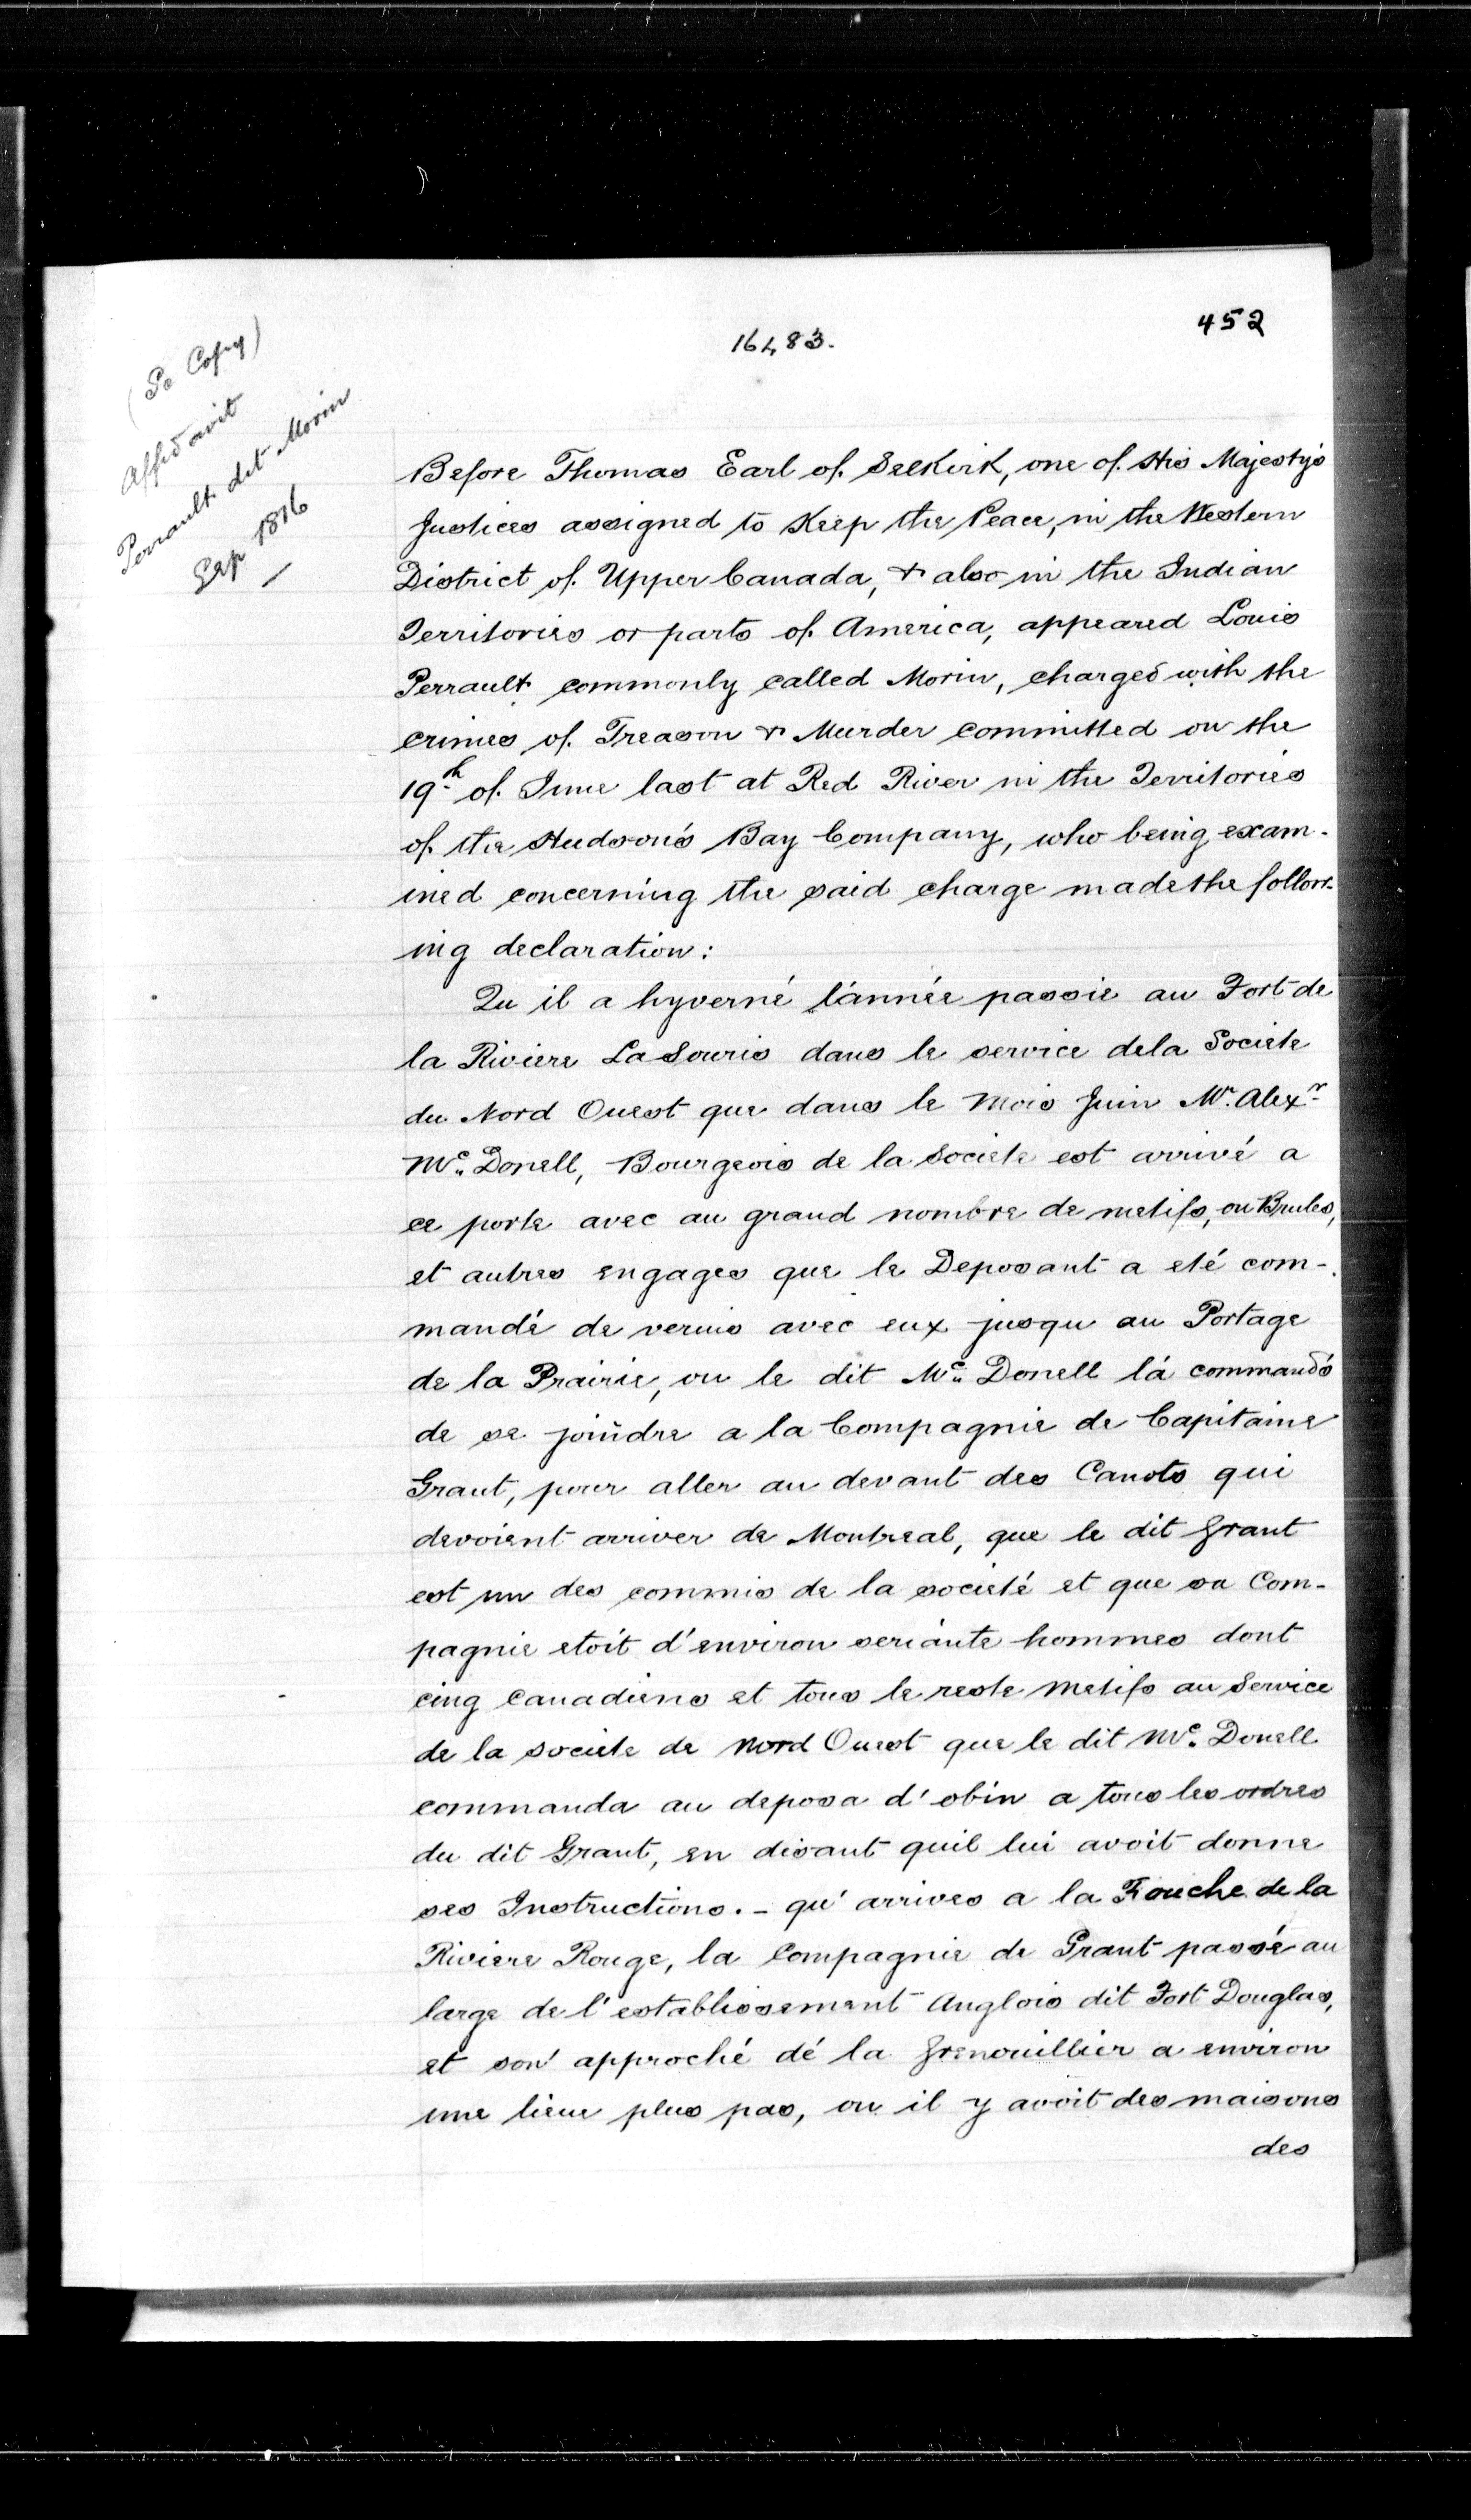 452
16483.
(So Copy)
Affidavit
Perrault dit Morin
Sep 1816
Before Thomas Earl of Selkirk, one of His Majesty's
Justices assigned to Keep the Peace, in the Western
District of Upper Canada, & also in the Indian
Territories or parts of America, appeared Louis
Perrault commonly called Morin, charged with the
crimes of Treason & Murder committed on the
19th of June last at Red River in the Territories
of the Hudson's Bay Company, who being exam-
ined concerning the said charge made the follow-
ing declaration:
Qu il a hyverné l'année passie au Fort de
la Riviere La Souris dans le service dela Societe
du Nord Ouest que dans le Mois Juin Mr. Alexr
Mc. Donell, Bourgeois de la Societe est arrivé a
ce porte avec au grand nombre de metifs, ou Brules,
et autres engages que le Deposant a eté com-
mandé de venis avec eux jusqu au Portage
de la Prairie, ou le dit Mc. Donell l'a commandó
de se joindre a la Compagnie de Capitaine
Grant, pour aller au devant des Canots qui
devoient arriver de Montreal, que le dit Grant
est un des commis de la societé et que sa Com-
pagnie etoit d'environ seriante hommes dont
cinq Canadiens et tous le reste Metifs au Service
de la societe de Nord Ouest que le dit Mc. Donell
commanda au deposa d'obin a tous les ordres
du dit Grant, en disant quil lui avoit donne
ses Instructions. - qu' arrives a la Fouche de la
Riviere Rouge, la Compagnie de Grant passé au
large de l'establissement Anglois dit Fort Douglas,
et son' approché dé la Grenouillier a environ
une lieue plus pas, ou il y avoit des maisons
des